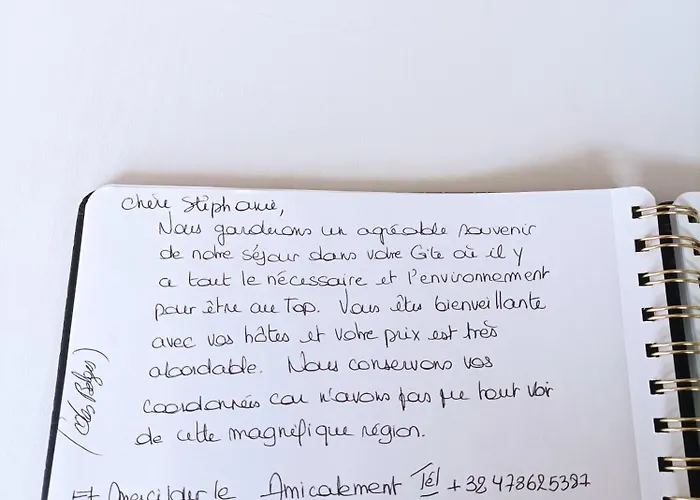 Chère Stéphanie,
Nous garderons un agréable souvenir
de notre séjour dans votre Gîte où il y
a tout le nécessaire et l'environnement
pour être au Top. Vous êtes bienveillante
avec vos hôtes et votre prix est très
abordable. Nous conservons vos
coordonnées car n'avons pas pu tout voir
de cette magnifique région.
(Les Belges)
Et Amicalement Tél +32 478625327